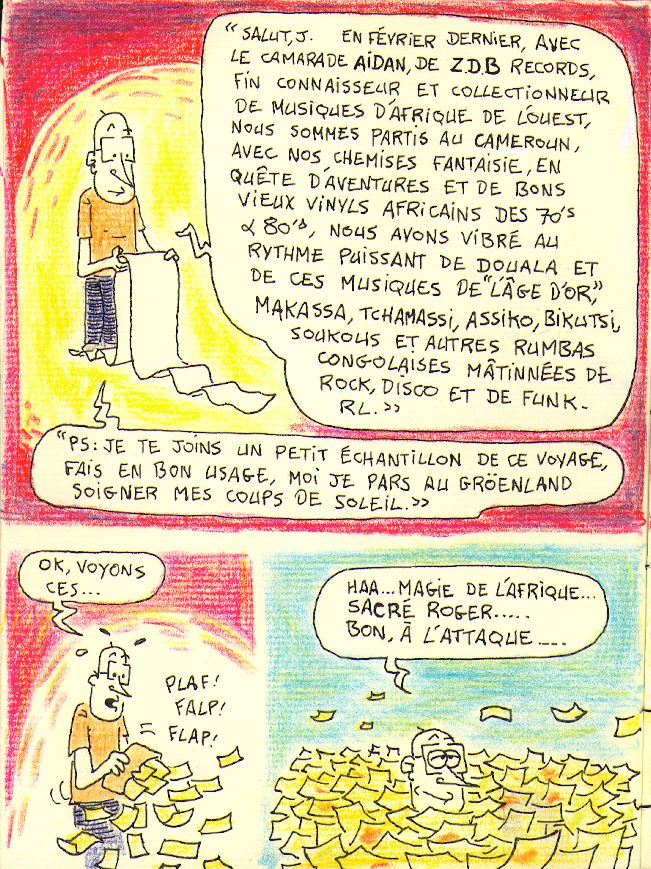 "SALUT, J. EN FÉVRIER DERNIER, AVEC
LE CAMARADE AIDAN, DE Z.D.B RECORDS,
FIN CONNAISSEUR ET COLLECTIONNEUR
DE MUSIQUES D'AFRIQUE DE L'OUEST,
NOUS SOMMES PARTIS AU CAMEROUN,
AVEC NOS CHEMISES FANTAISIE, EN
QUÊTE D'AVENTURES ET DE BONS
VIEUX VINYLS AFRICAINS DES 70's
& 80's, NOUS AVONS VIBRÉ AU
RYTHME PUISSANT DE DOUALA ET
DE CES MUSIQUES DE "L'ÂGE D'OR",
MAKASSA, TCHAMASSI, ASSIKO, BIKUTSI,
SOUKOUS ET AUTRES RUMBAS
CONGOLAISES MÂTINNÉES DE
ROCK, DISCO ET DE FUNK.
RL.>>
"PS: JE TE JOINS UN PETIT ÉCHANTILLON DE CE VOYAGE,
FAIS EN BON USAGE, MOI JE PARS AU GRÖENLAND
SOIGNER MES COUPS DE SOLEIL.>>
OK, VOYONS
CES...
PLAF!
FALP!
FLAP!
HAA... MAGIE DE L'AFRIQUE...
SACRÉ ROGER.....
BON, À L'ATTAQUE ....